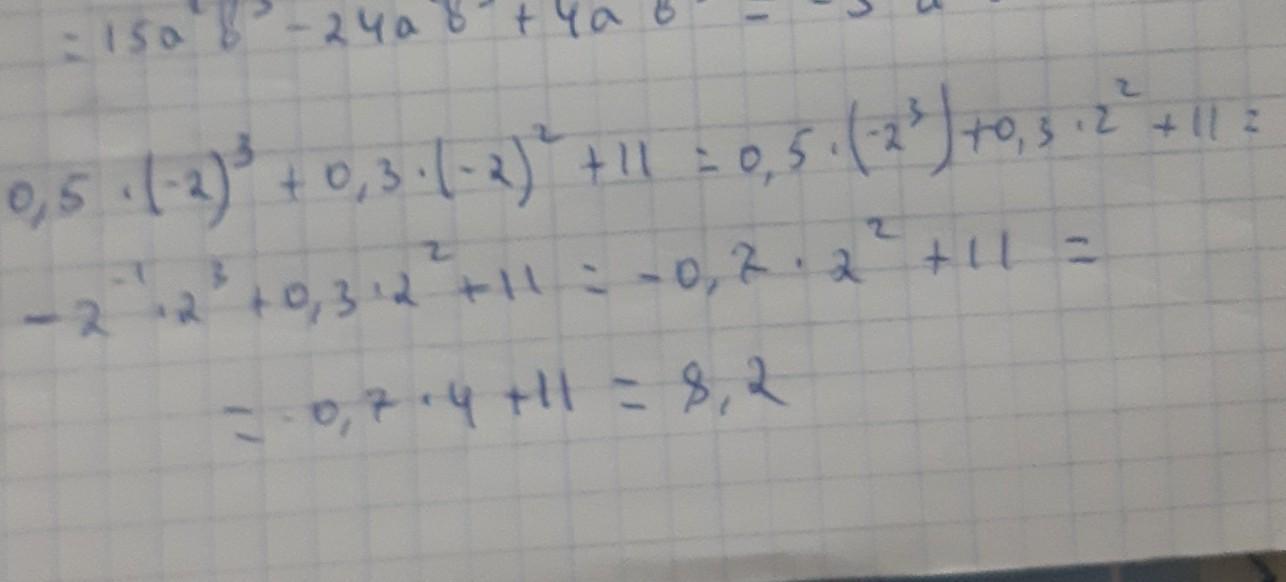 = 15a b³ - 24a b + 4a b =
0,5 · (-2)³ + 0,3 · (-2)² + 11 = 0,5 · (-2³) + 0,3 · 2² + 11 =
-2⁻¹ · 2³ + 0,3 · 2² + 11 = -0,7 · 2² + 11 =
= -0,7 · 4 + 11 = 8,2